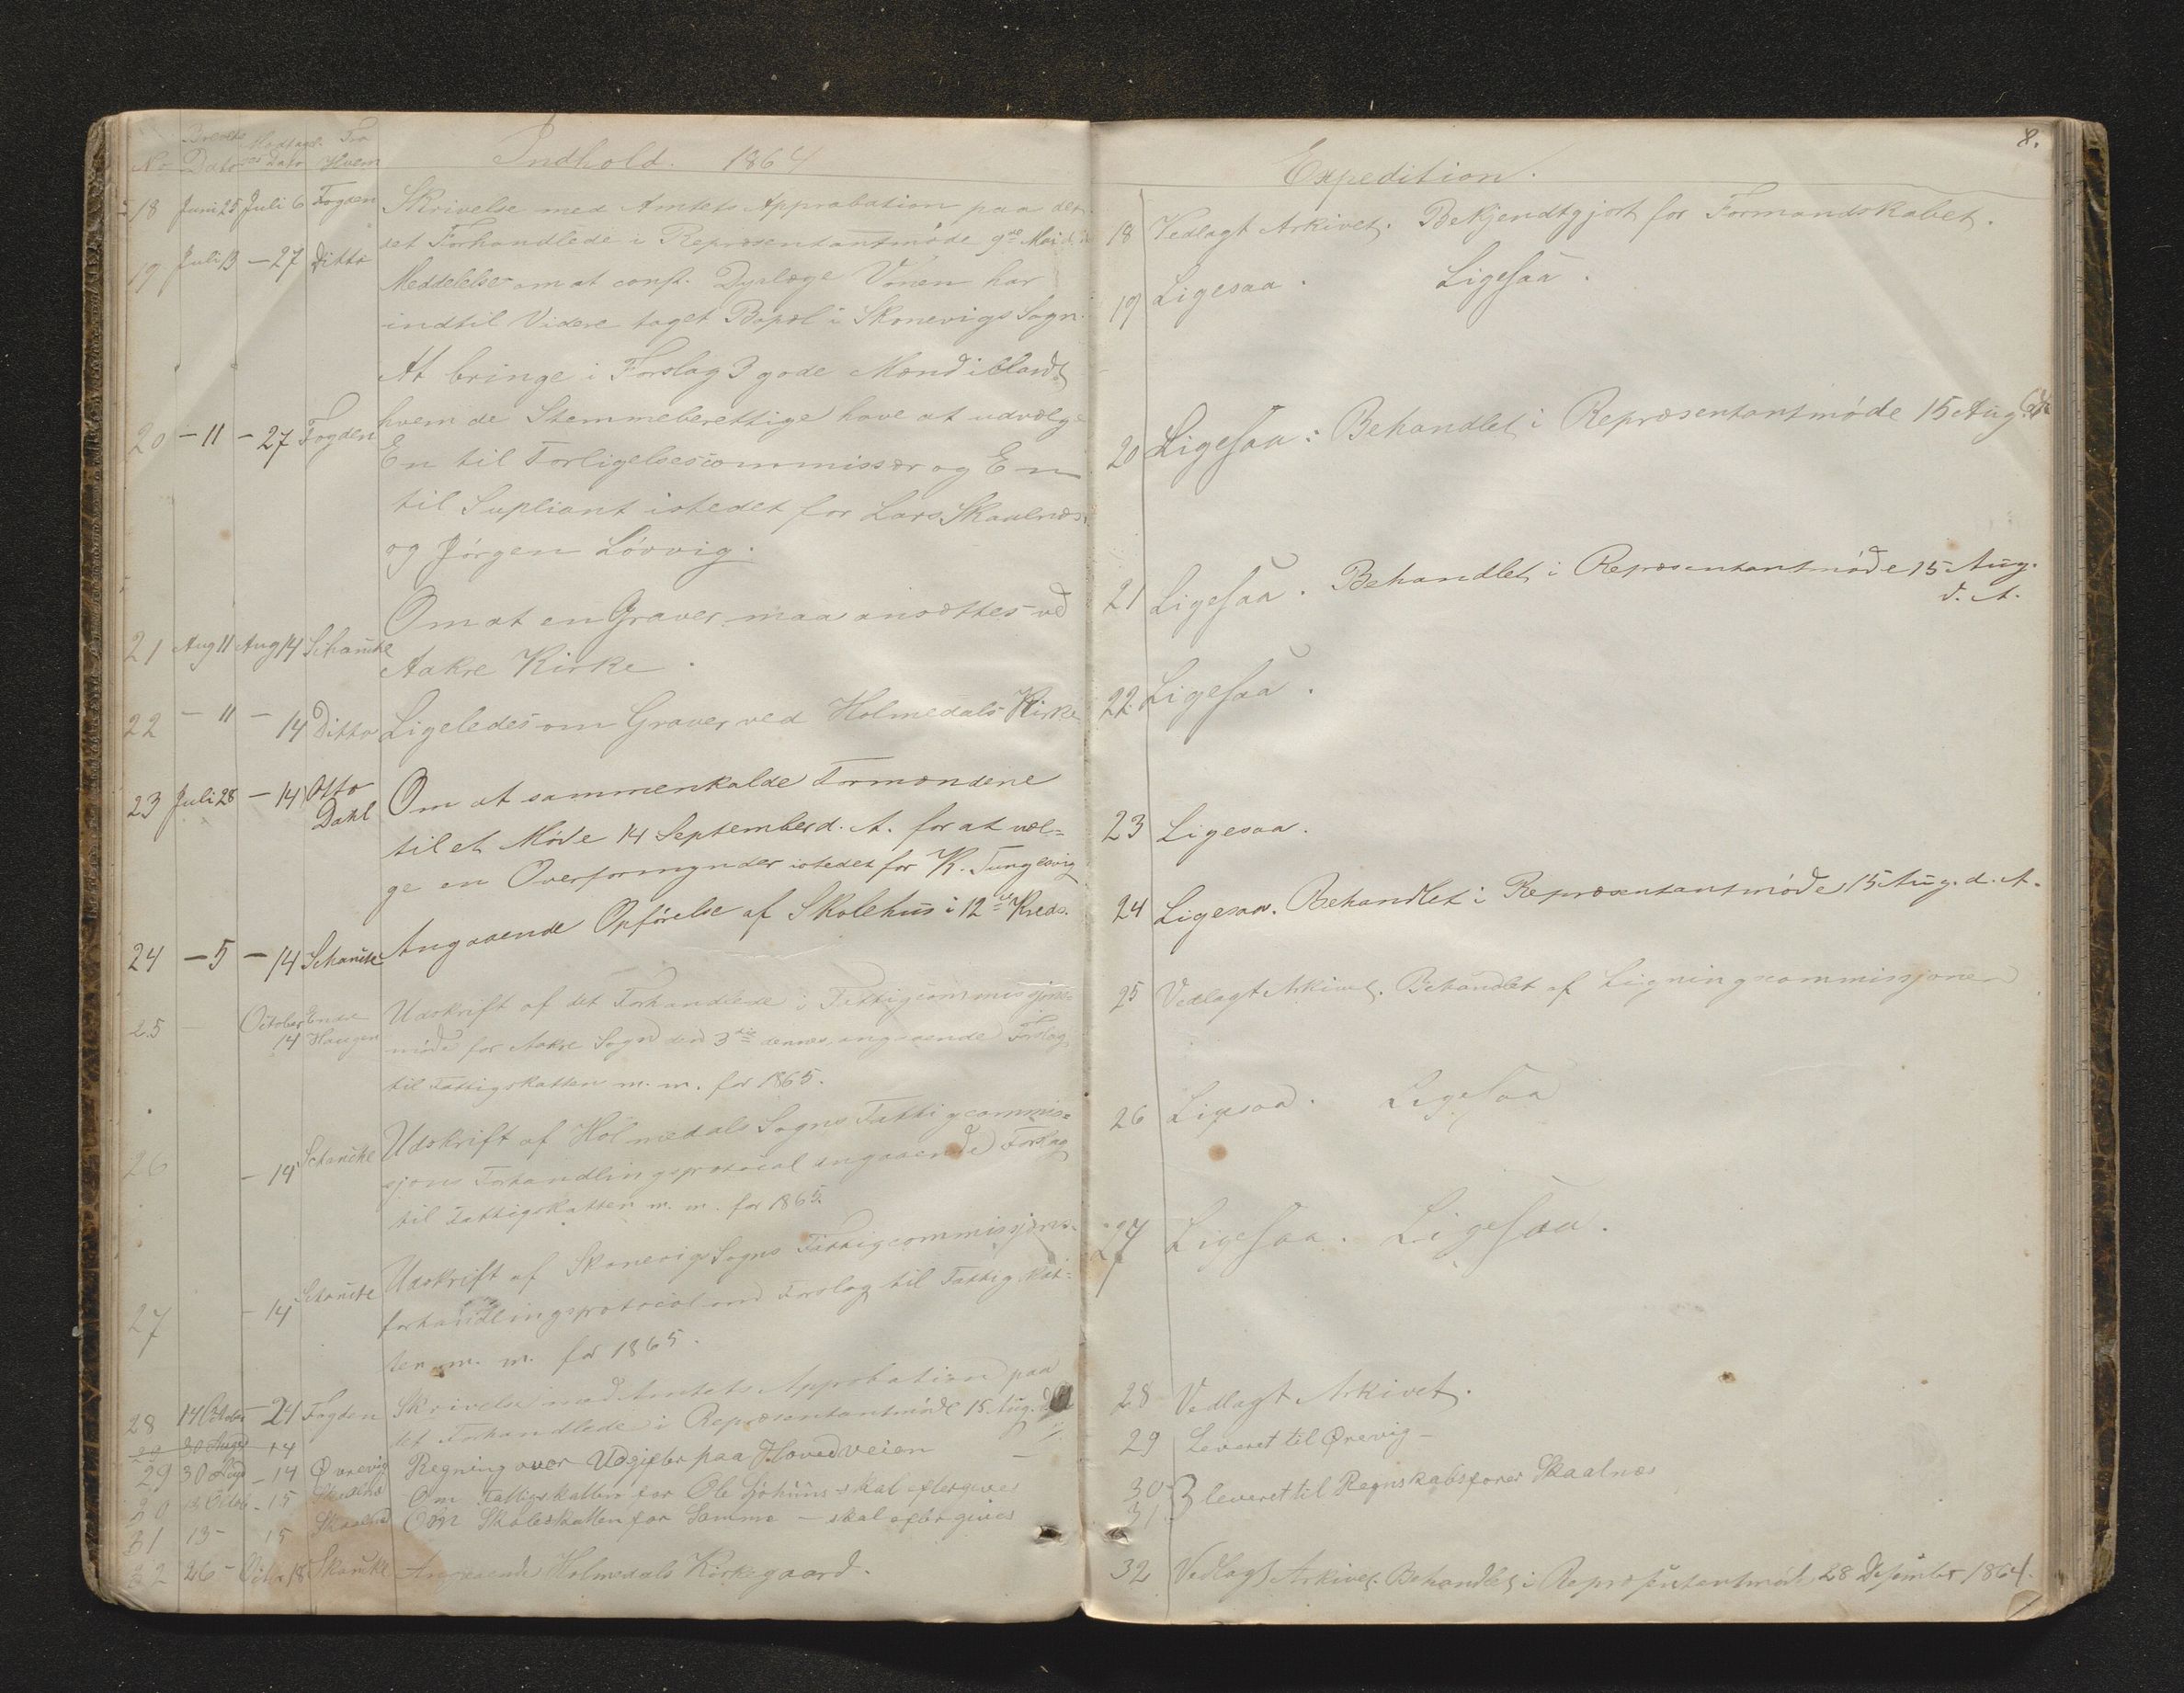 No Brevets Dato Modtagelses Dato Fra Hvem Indhold. 1864
18 Juni 25 Juli 6 Fogden Skrivelse med Amtets Approbation paa det
det Forhandlede i Repræsentantmøde 9de Mai d.
19 Juli 13 – 27 Ditto Meddelelse om at const. Dyrlæge Vonen har
indtil Videre taget Bopæl i Skonevigs Sogn.
At bringe i Forslag 3 gode Mænd iblandt
hvem de Stemmeberettige have at udvælge
20 – 11 – 27 Fogden En til Forligelsescommissær og En
til Supliant istedet for Lars Skaalnæs
og Jørgen Løvvig.
Om at en Graver maa ansættes ved
21 Aug 11 Aug 14 Schancke Aakre Kirke.
22 – 11 – 14 Ditto Ligeledes om Graver ved Holmedals Kirke
23 Juli 28 – 14 Otto Dahl Om at sammenkalde Formændene
til et Møde 14 September d. A. for at vel=
ge en Overformynder istedet for K. Tungesvig
24 – 5 – 14 Schancke Angaaende Opførelse af Skolehus i 12te Kreds.
25 October 14 Haugen Udskrift af det Forhandlede i Fattigcommissjons=
møde for Aakre Sogn den 3die dennes, angaaende Forslag
til Fattigskatten m. m. for 1865.
26 – 14 Schancke Udskrift af Holmedals Sogns Fattigcommis=
sjons Forhandlingsprotocol angaaende Forslag
til Fattigskatten m. m. for 1865
27 – 14 Schancke Udskrift af Skonevigs Sogns Fattigcommissjons=
forhandlingsprotocol med Forslag til Fattigskat=
ten m. m. for 1865.
28 14 October – 24 Fogden Skrivelse med Amtets Approbation paa
det Forhandlede i Repræsentantmøde 15 Aug.
29 30 August 14
29 30 Aug – 14 Ørevig Regning over Udgifter paa Hovedveien
30 October – 15 Om Fattigskatten for Ole Sjohuus skal eftergives
31 13 – 15 Skaalnæs Om Skoleskatten for Samme – skal eftergives
32 26 – Octbr 18 Skancke Angaaende Holmedals Kirkegaard.
8.
Expedition.
18 Vedlagt Arkivet. Bekjendtgjort for Formandskabet.
19 Ligesaa. Ligesaa.
20 Ligesaa. Behandlet i Repræsentantmøde 15 Aug.
21 Ligesaa. Behandlet i Repræsentantmøde 15 Aug.
d. A.
22 Ligesaa.
23 Ligesaa.
24 Ligesaa. Behandlet i Repræsentantmøde 15 Aug. d. A.
25 Vedlagt Arkivet. Behandlet af Ligningscommissjonen
26 Ligesaa. Ligesaa
27 Ligesaa. Ligesaa.
28 Vedlagt Arkivet.
29 Leveret til Ørevig –
30
31 } leveret til Regnskabsfører Skaalnæs
32 Vedlagt Arkivet. Behandlet i Repræsentantmøde 28 Desember 1864.